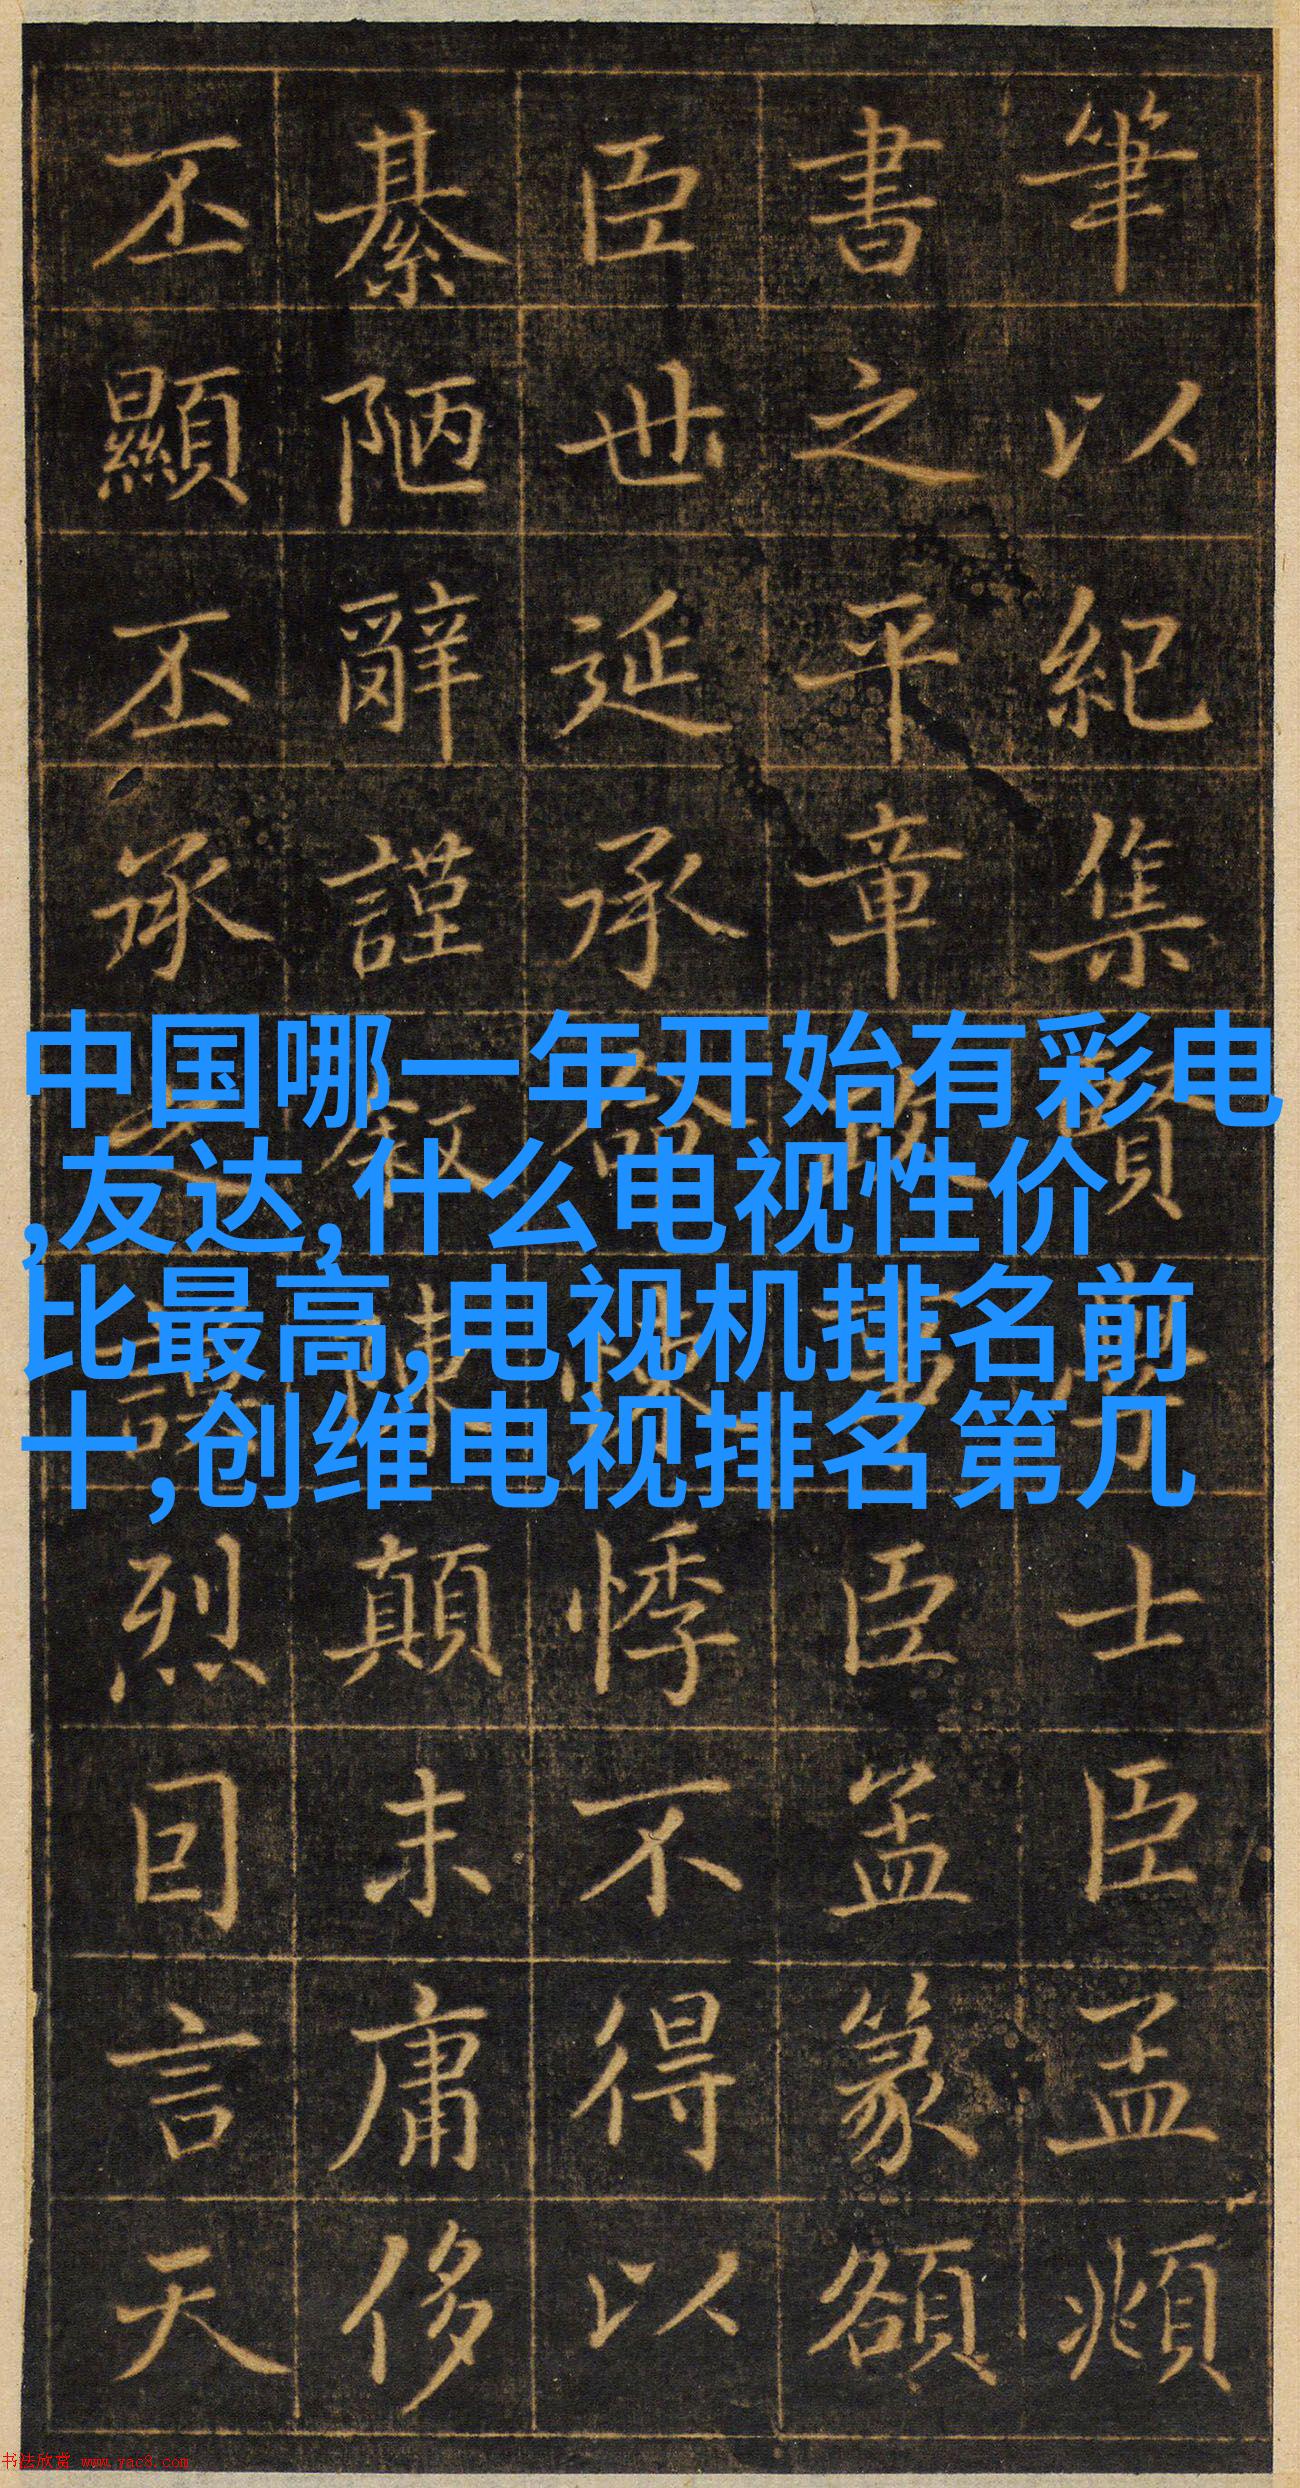 中国哪一年开始有彩电
,友达,什么电视性价
比最高,电视机排名前
十,创维电视排名第几
筆以紀集賢學士臣孟頫
書之平章政事臣篆額
臣世延承命悚悸不得以
綦陋辭謹叙陳顛末庸侈
丕顯丕承之謨烈囙言天
书法欣赏 www.yac8.com